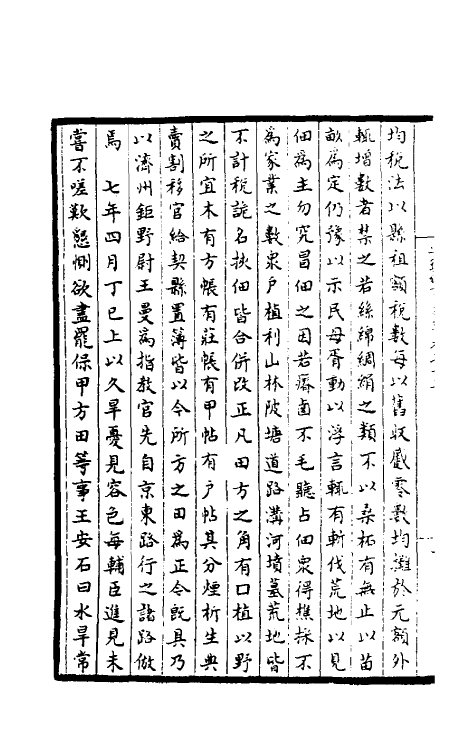 均稅法以縣租額稅數每以舊收蹙零數均攤於元額外
輒增數者禁之若絲綿綢絹之類不以桑柘有無止以苗
畝為定仍豫以示民毋胥動以浮言輒有斬伐荒地以見
佃為主勿究冒佃之因若瘠鹵不毛聽占佃衆得樵採不
為家業之數衆户植利山林陂塘道路溝河墳墓荒地皆
不計稅詭名挾佃皆合併改正凡田方之角有口植以野
之所宜木有方帳有莊帳有甲帖有户帖其分煙析生典
賣割移官給契縣置簿皆以今所方之田為正令既具乃
以濟州鉅野尉王曼為指教官先自京東路行之諸路倣
焉　七年四月丁巳上以久旱憂見容色每輔臣進見未
嘗不嗟歎懇惻欲盡罷保甲方田等事王安石曰水旱常